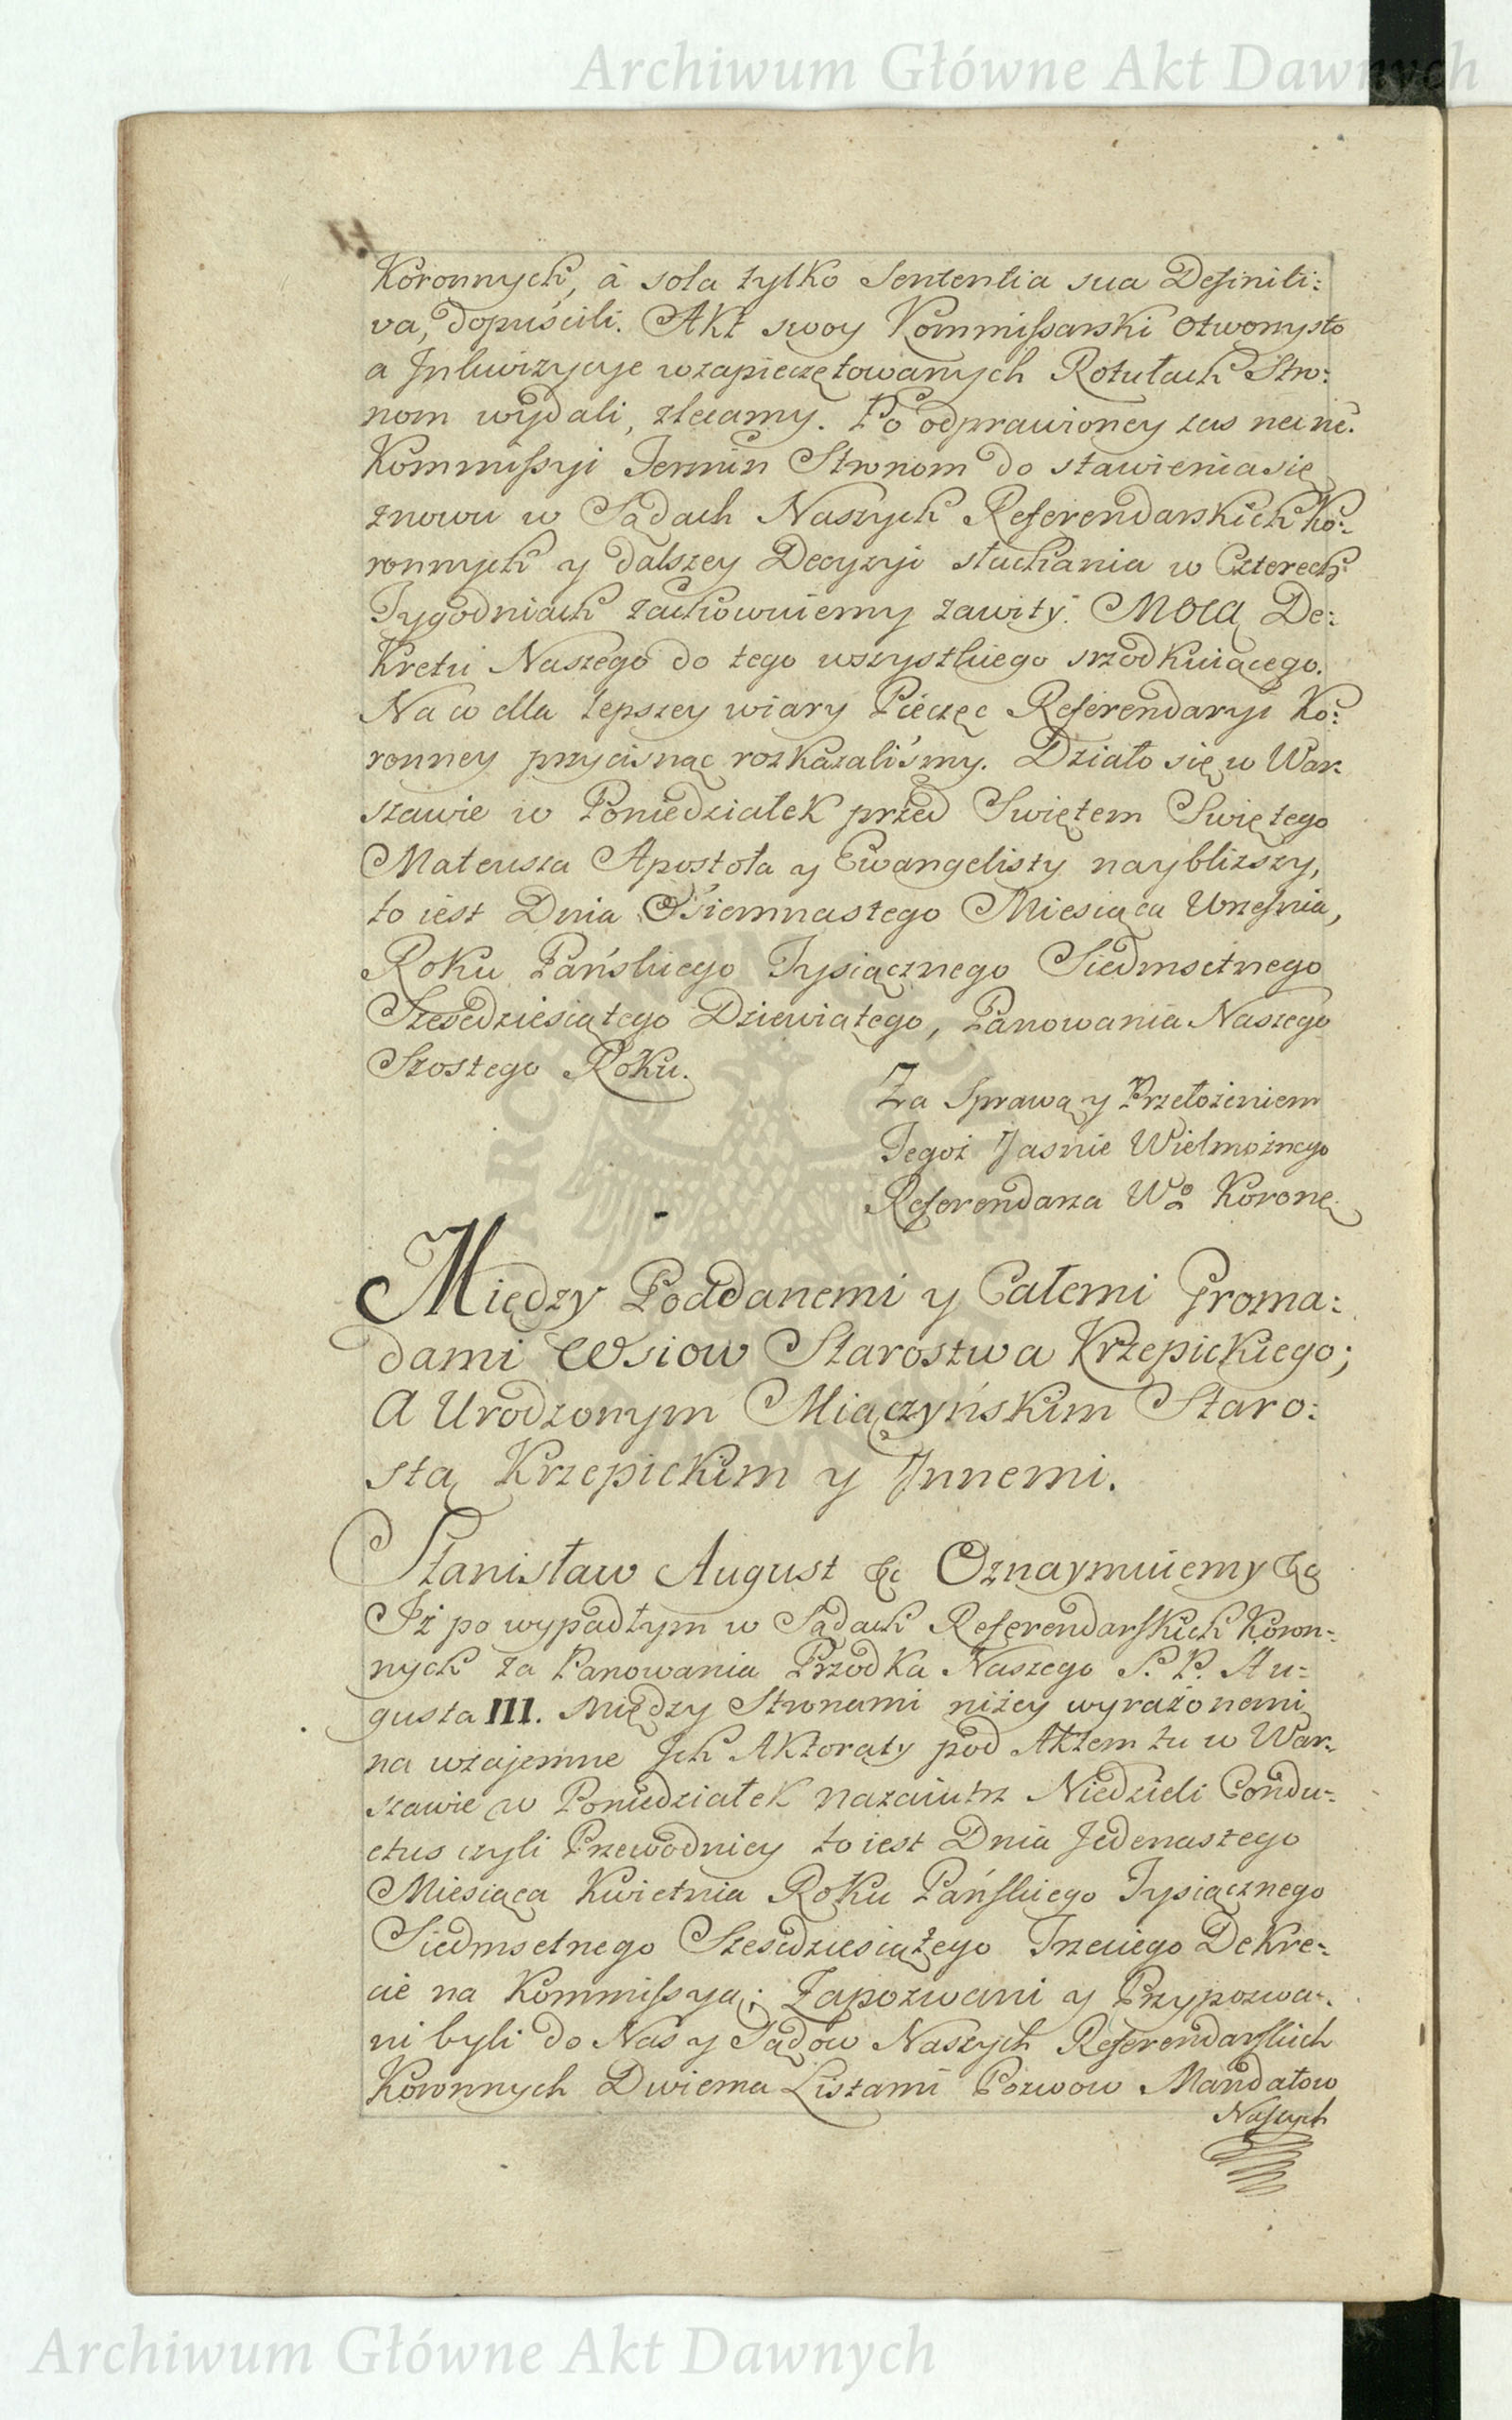 Archiwum Główne Akt Dawnych
Koronnych, à sola tylko Sententia sua Definiti:
va, dopuścili. Akt swoy Kommissarski Otworzysto
a Inkwizycye w zapieczętowanych Rotułach Stro:
nom wydali, zlecamy. Po odprawioney zas
Kommissyi Termin Stronom do stawienia się
znowu w Sądach Naszych Referendarskich Ko:
ronnych y dalszey Decyzyi słuchania w Czterech
Tygodniach zachowuiemy zawity. Mocą De:
kretu Naszego do tego wszystkiego srzodkuiącego.
Na co dla lepszey wiary Pieczęc Referendaryi Ko:
ronney przycisnąc rozkazaliśmy. Działo się w War:
szawie w Poniedziałek przed Swiętem Swiętego
Mateusza Apostoła y Ewangelisty naybliższy,
to iest Dnia Osiemnastego Miesiąca Wrzesnia,
Roku Pańskiego Tysiącznego Siedmsetnego
Szescdziesiątego Dziewiątego, Panowania Naszego
Szostego Roku.
Za Sprawą y Przełożeniem
Tegoż Jasnie Wielmożnego
Referendarza Wo Koronę.
Między Poddanemi y Całemi Groma:
dami Wsiow Starostwa Krzepickiego;
A Urodzonym Miączyńskim Staro:
stą Krzepickim y Innemi.
Stanisław August &c Oznaymuiemy &c
Iż po wypadłym w Sądach Referendarskich Koron-
nych za Panowania Przodka Naszego S. P. Au-
gusta III. Między Stronami niżey wyrażonemi
na wzajemne Ich Aktoraty pod Aktem tu w War-
szawie w Poniedziałek nazaiutrz Niedzieli Condu-
ctus czyli Przewodniey to iest Dnia Jedenastego
Miesiąca Kwietnia Roku Pańskiego Tysiącznego
Siedmsetnego Szescdziesiątego Trzeciego Dekre-
cie na Kommissyą; Zapozwani y Przypozwa-
ni byli do Nas y Sądow Naszych Referendarskich
Koronnych Dwiema Listami Pozwow Mandatow
Naszych
Archiwum Główne Akt Dawnych